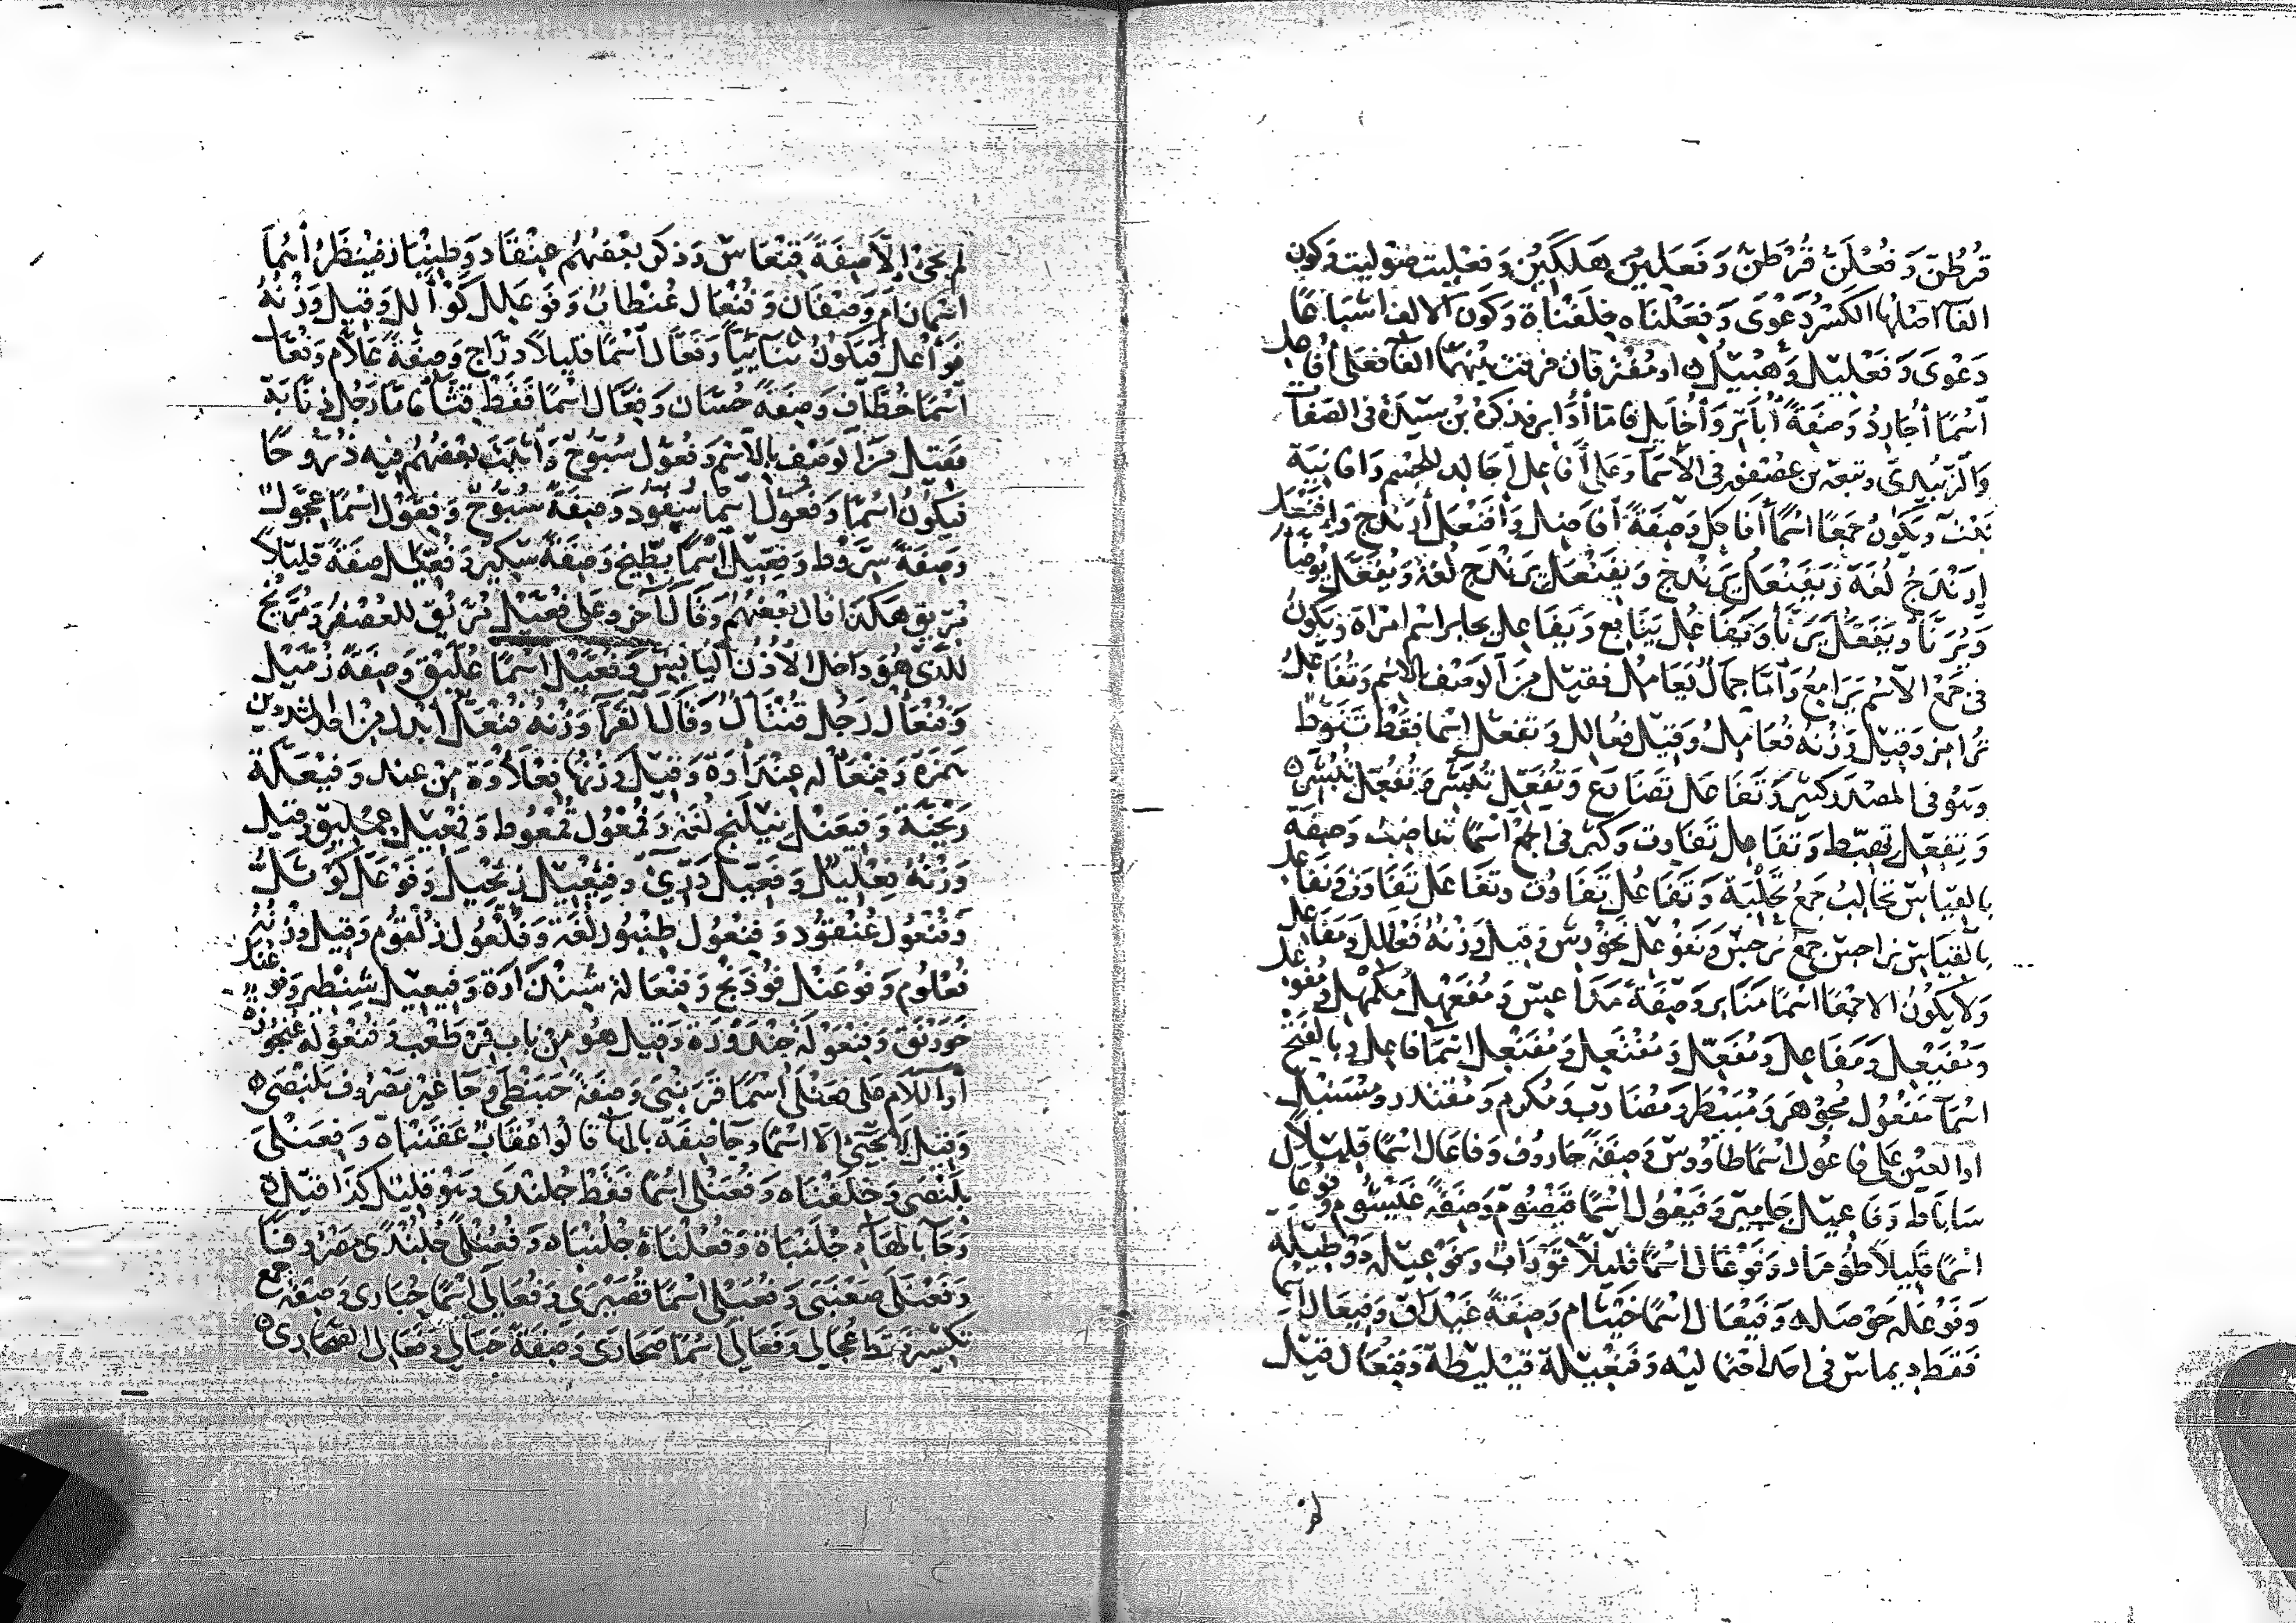 قُرْطُنّ وَفُعْلَنّ قُرْطَنّ وَفَعَلِين هَلَكِين وَفَعْلِيت صَوْليت وَكون
الفَا اصلُها الكَسْر دَعْوَى وَفِعَلْنَاه خِلَفْنَاة وَكون الالف اشباعًا
دَعْوَى وَفَعْلِيل وَهْبِيل ه او مُفْتَرقان فرقت بينهمَا الفَاء فعَلى أفَاعل
اسْمًا أُجَارِدُ وَصِفَةً أُبَاتِر وَأُخَايِل فامَا أُدَابِر فذكره بن سِيْدَة في الصفات
وَالزُبَيْديّ وتبعه بن عصفور في الاسْمَا وَعَلى أَفَاعِل أَجَالِد للجِسْم وَافانيَة
نَبْت وَيكون جَمعًا اسْمًا أَفَاكِل وَصِفَةً أفَاضِل وَأَفَنْعَل أَرَنْدَج وَإِفَنْعَل
إِرَنْدَج لُغَة وَيَفَنْعَل يَرَنْدَج وَيفَنْعَل يرَنْدَج لُغَة وَيُفَعَّل يُوضَّأ
وَيُرَنَّأ وَيَفَعَّل يَرَنَّأ وَيَفَاعُل يَنَابُع وَيَفَاعِل يحابر اسْم امْرَاة وَيكون
في جَمْع الاسْم يَرَامِعُ وَأمّا جِمَال يَعَامِل فقيل مِنَ الوَصْف بالاسْم وَتُفَاعِل
تُرامِز وَقِيْل وَزْنه فُعَامِل وَقِيْل فُعَالِل وَتَفَعُّل اسْمًا فقَطْ تَنَوّط
وَهْو في المصْدَر كثير وَتَفَاعَل تَضَارَع وَتُفُعِّل تُبُشِّر وَتُفَعِّل تُبَشِّر ه
وَتِفِعِّل تِهِبِّط وَتَفَاعِل تَفَاوِت وَكثر في الجمْع اسْمًا تَعَاضِيْب وَصِفَة
بالقياس تحَالِبُ جَمْعُ تِحْلِبَة وَتَفَاعُل تَفَاوُت وتَفَاعَل تَفَاوَت وَنَفَاعِل
بالقيَاس نراجس جمع نرجس وَنَفَوْعِل نَخَوْرش وَقِيل وَزْنه فَعَلِّل وَمَفَاعِل
وَلا يَكُونُ الا جمْعًا اسْمًا مَنَابِر وَصِفَةً مَدَاعِس وَمُفَعْهِل مُكَمْهِل وَمُفَوْعِل
وَمُفَيْعِل وَمَفَاعِل وَمُفَعِّل وَمُفْتَعِل وَمُفَنْعِل اسْمًا فاعِل وبالفتح
اسْمَ مَفْعُول مُجَوْهَر وَمُبَيْطَر وَمُضَارَب وَمُكرم وَمُقتدر ومُسَنْبَل
اوالعين على فاعُول اسْمًا طَاوُوس وَصِفَةً جَارُوف وَفاعَال اسْمًا قليلًا
سَابَاط وَفاعِيل جَامِيز وَفَيْعُول اسْمًا قَيْصُوم وَصِفَةً عَيْشُوم وفُوعَال
اسْمًا قَلِيلًا طُومَار وَفَوْعَال اسْمًا قليلًا تَوْرَاب وَفَوْعِيلة دَوْطِيْلَة
وَفَوْعَلة حَوْصلة وَفَيْعَال اسْمًا خَيْتَام وَصِفَةً غَيْدَاق وَفِيْعَال اسْما
فَقط دِيماس في احد احتماليه وَفَعْيِلَة قَيْلِيْطة وَفِنْعَال قيْل
لم يَجئ الاّ صِفَةً قِنْعَاس وَذكر بَعْضهُم عِنْقاد وَطِنْبَار فيُنظَرُ أسْمَا
اسْمان ام وَصْفان وَفُنْعَال عُنْظاب وَفَوَعْلِل كَوَأْلِل وَقِيل وَزْنه
فَوَأْعل فيكون ثنَائيًا وَفَعّال اسْمًا قليلًا درّاج وَصِفَةً عَلّام وَفُعّال
اسْمًا خُطّاف وَصِفَةً حُسّان وَفِعّال اسْمًا فَقَطْ قِثّاء فامّا رَجُل دِنّابَة
فقِيل مِنَ الوَصْف بالاسْم وَفُعُّول سُبُّوح وَأثبت بَعْضهُم فيه ذُرُّوحًا
فَيكونُ اسْمًا وَفَعُّول اسْمًا سَفُّود وَصِفَةً سَبُّوح وَفِعَّوْل اسْمًا عِجَّوْل
وَصِفَةً سِرَّوْط وَفِعِّيل اسْمًا بِطّيخ وَصِفَةً سِكّير وَفُعِّيل صِفَةً قليلًا
مُرِّيق هَكَذا قال بَعْضهُم وَقَال آخر وَعَلى فُعِّيْل مُرِّيق للعُصْفر وَمُرِّيخ
للذي هُوَ داخل الاذُن اليابس وَفُعَّيْل اسْمًا عُلَّيْق وَصِفَةً زُمَّيْل
وَفُنْعَال رَجُل قُنْثَال وَقَال الفَرَّا وَزْنه فُنْعَلّ ابدل مِنْ احد اللامين
همزة وَفِنْعَالة عِنْدَأْوَة وَقِيل وَزْنها فِعْلَأْوَة مِنْ عند وَفَيْعَلّة
رَيْخَنّة وَفِيَعْنَل نِيَلَنْج لُغَة وَفُمْعُول قُمْعُوط وَفِمْعِيل عِمْلِيق وَقيل
وَزْنه فِعْلِيل وَفَعِّيل دَرِّيّ وَفِنْعِيل زِنْجيل وَفَوَعْلَل كَوَأْلَل
وَفُنْعُول عُنْقود وَفِنْعُول طِنْبُور لُغَة وَفُلْعُول زُلْقُوم وَقيل وَزْنه
فُعْلُوم وَفُوعَنْل فُوذَنْج وَفِنْعَالة شِنْذَارَة وَفِنْعِيْل شِنْظِير وَفَوَنْعَل
خَوَرْنَق وَفِنْعَوْلَة حِنْدَوْرَة وَقيل هُو مِنْ بَاب قِرْطَعْب وَفُنْعُوْلة عُنْجُورَة
أو اللام على فَعَنْلَى اسْمًا قَرَنْبَى وَصِفَةً حَبَنْطَى وَجَا غيْر مَصْروف بَلَنْصَى ه
وَقِيل لا يَجيْئ الا اسْمًا وجا صِفَة بالهاء قالوا عُقَابٌ عَقَنْبَاه وَفِعَنْلَى
بِلَنْصَى وَجِلَعْنَاه وَفُعَنْلَى اسْمًا فَقَطْ جُلَنْدَى وَهْوَ قليل كذا قيل ه
وَجَا بالهَاء جُلَنْبَاة وَفُعُلْنَاة جُلُنْبَاه وَفُعُنْلَى جُلُنْدًى مَصْروفا
وَفَعَنْلَى صَعَنْبَى وَفُعَيْلَى اسْمًا قُصَيْرَى وَفُعَالَى اسْمًا حُبَارَى وَصِفَةً جمع
تكسِير فقط عُجَالى وَفَعَالَى اسْمًا صَحَارَى وَصِفَةً حَبَالى وَفَعَالِ الصحَارِي ه